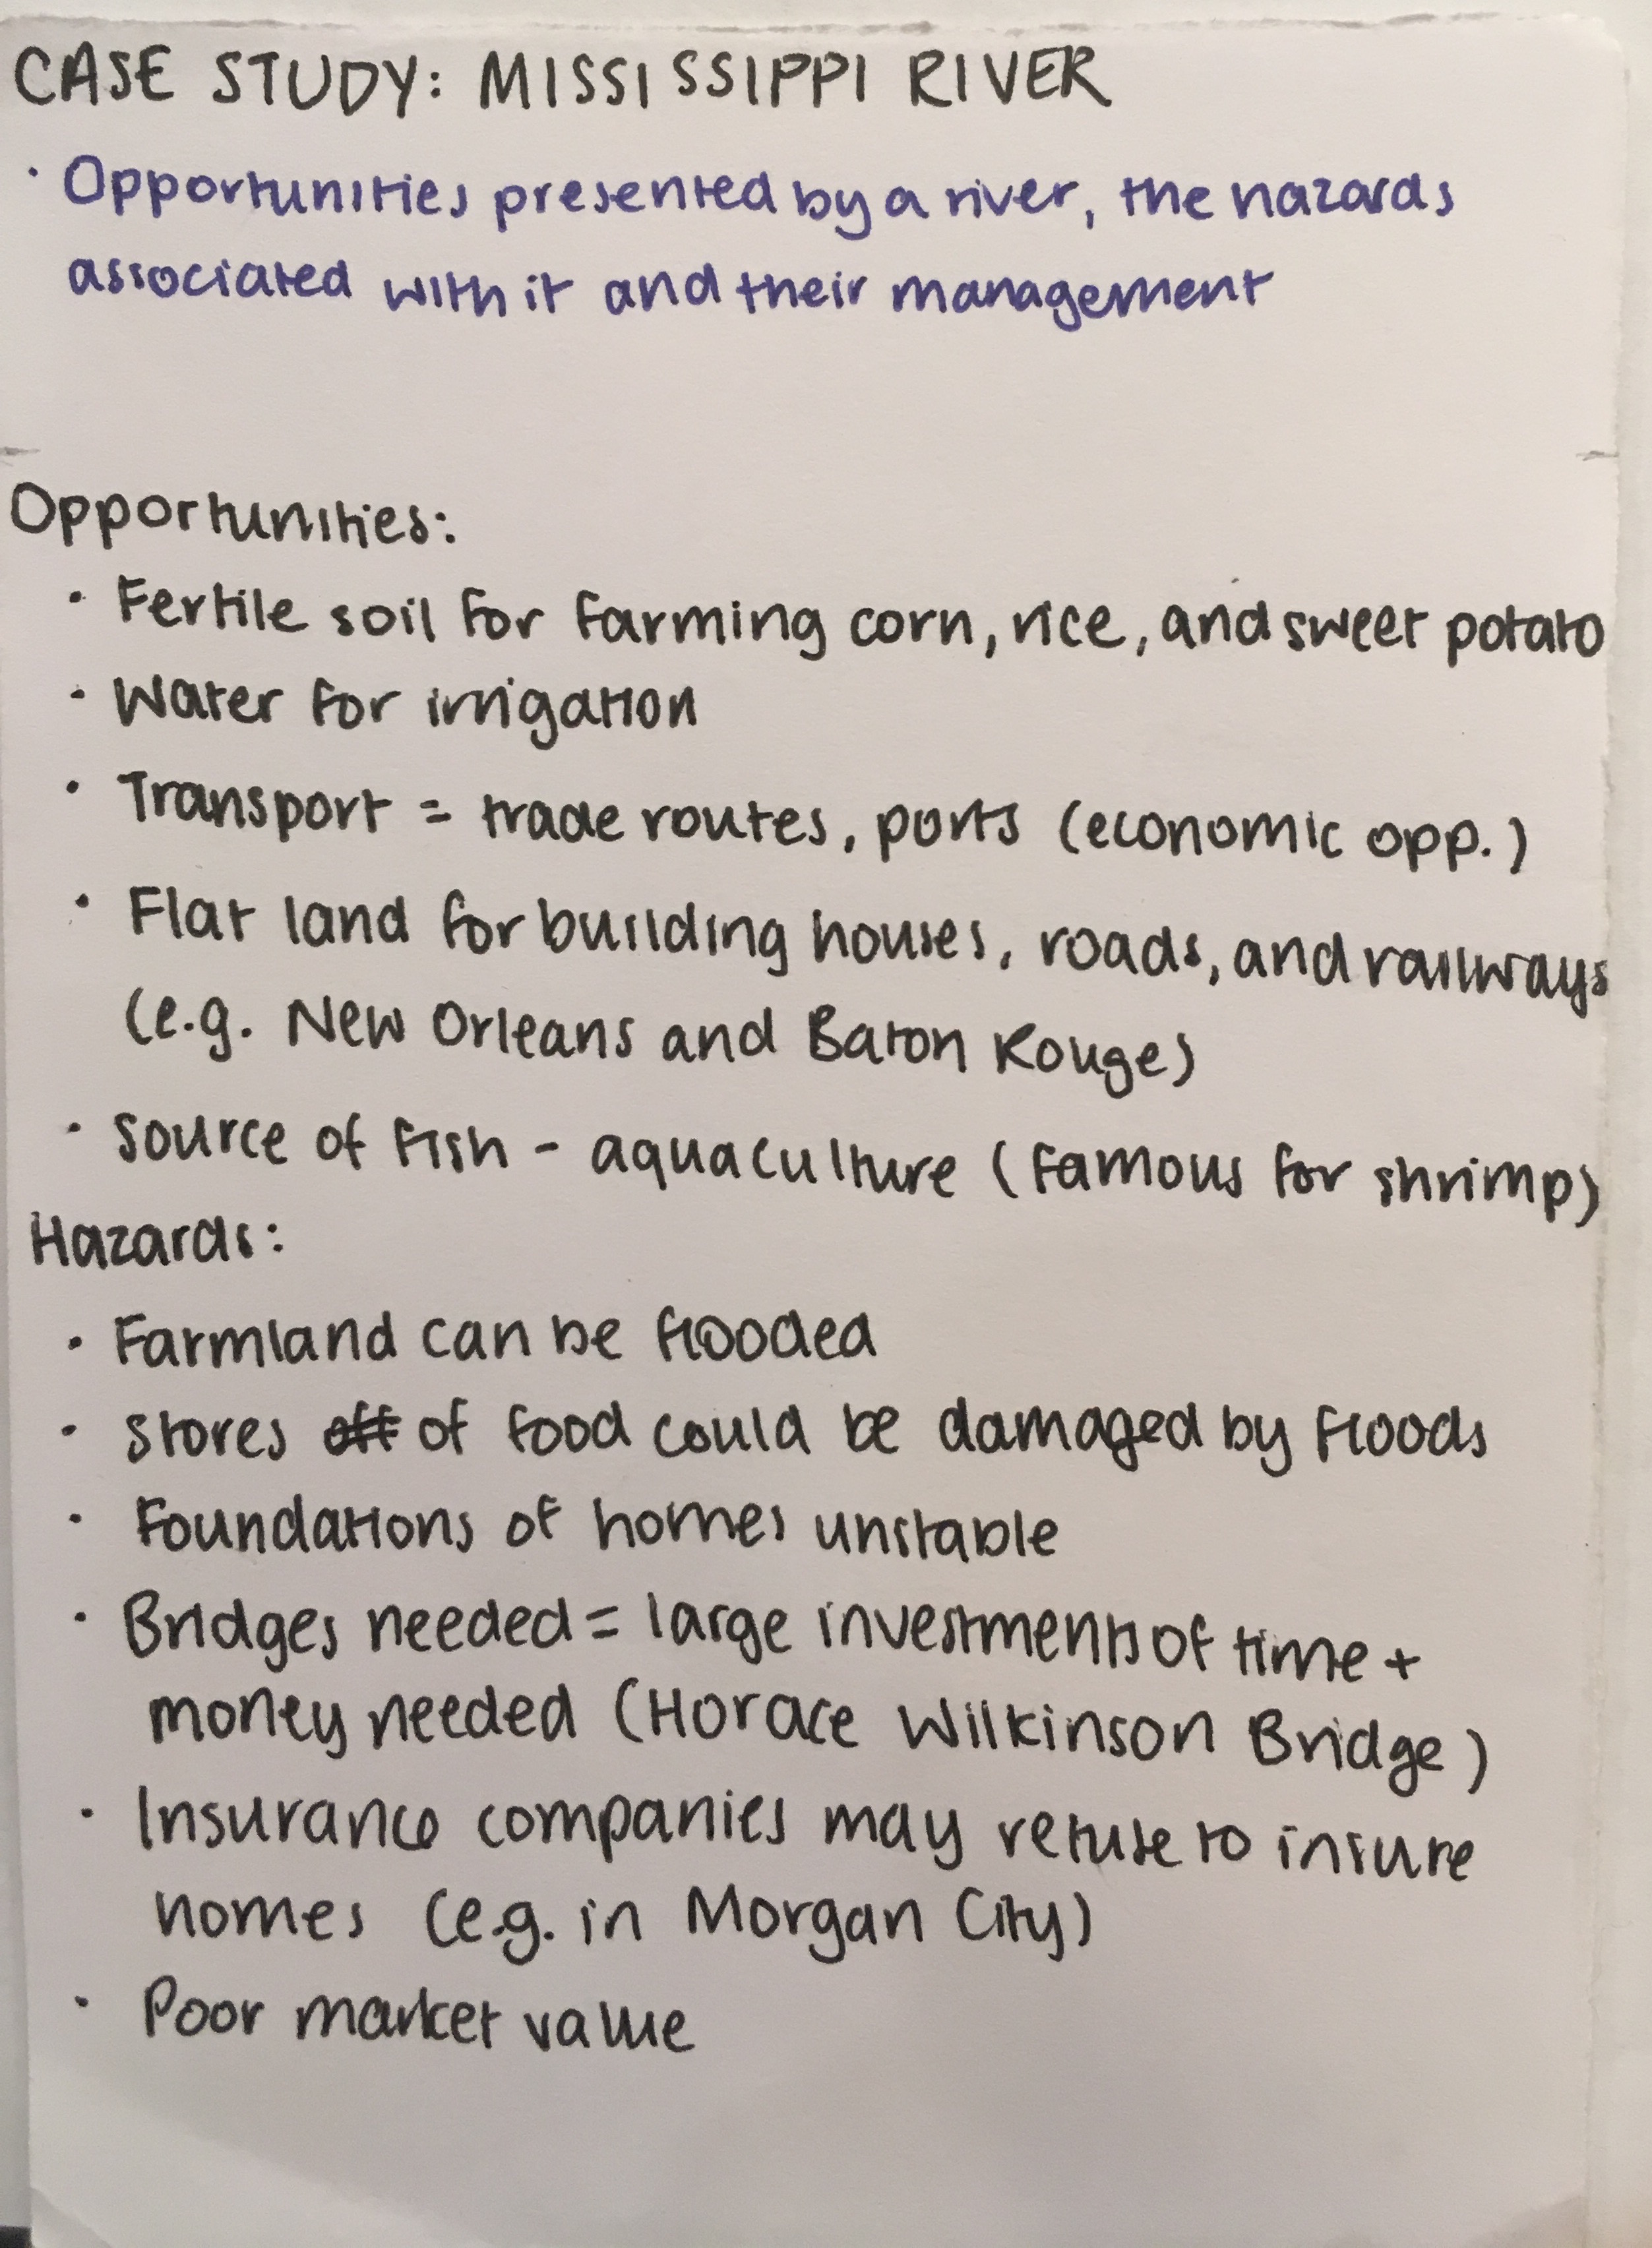 CASE STUDY: MISSISSIPPI RIVER
· Opportunities presented by a river, the hazards
associated with it and their management
Opportunities:
· Fertile soil for farming corn, rice, and sweet potato
· Water for irrigation
· Transport = trade routes, ports (economic opp.)
· Flat land for building houses, roads, and railways
(e.g. New Orleans and Baton Rouge)
· Source of fish - aquaculture (famous for shrimp)
Hazards:
· Farmland can be flooded
· Stores off of food could be damaged by floods
· Foundations of homes unstable
· Bridges needed = large investments of time +
money needed (Horace Wilkinson Bridge)
· Insurance companies may refuse to insure
homes (e.g. in Morgan City)
· Poor market value